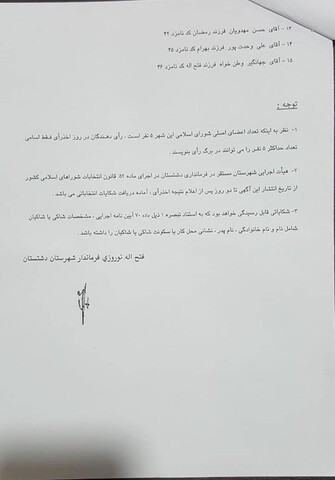 ۱۳ - آقای حسن مهدویان فرزند رمضان کد نامزد ۴۲
۱۴ - آقای علی وحدت پور فرزند بهرام کد نامزد ۴۵
۱۵ - آقای جهانگیر وطن خواه فرزند فتح اله کد نامزد ۴۶
توجه :
۱- نظر به اینکه تعداد اعضای اصلی شورای اسلامی این شهر ۵ نفر است ، رأی دهندگان در روز اخذرأی فقط اسامی
تعداد حداکثر ۵ نفر را می توانند در برگ رأی بنویسند .
۲- هیأت اجرایی شهرستان مستقر در فرمانداری دشتستان در اجرای ماده ۵۲ قانون انتخابات شوراهای اسلامی کشور
از تاریخ انتشار این آگهی تا دو روز پس از اعلام نتیجه اخذرأی ، آماده دریافت شکایات انتخاباتی می باشد .
۳- شکایاتی قابل رسیدگی خواهد بود که به استناد تبصره ۱ ذیل ماده ۷۰ آیین نامه اجرایی ، مشخصات شاکی یا شاکیان
شامل نام و نام خانوادگی ، نام پدر ، نشانی محل کار یا سکونت شاکی یا شاکیان را داشته باشد .
فتح اله نوروزی فرماندار شهرستان دشتستان